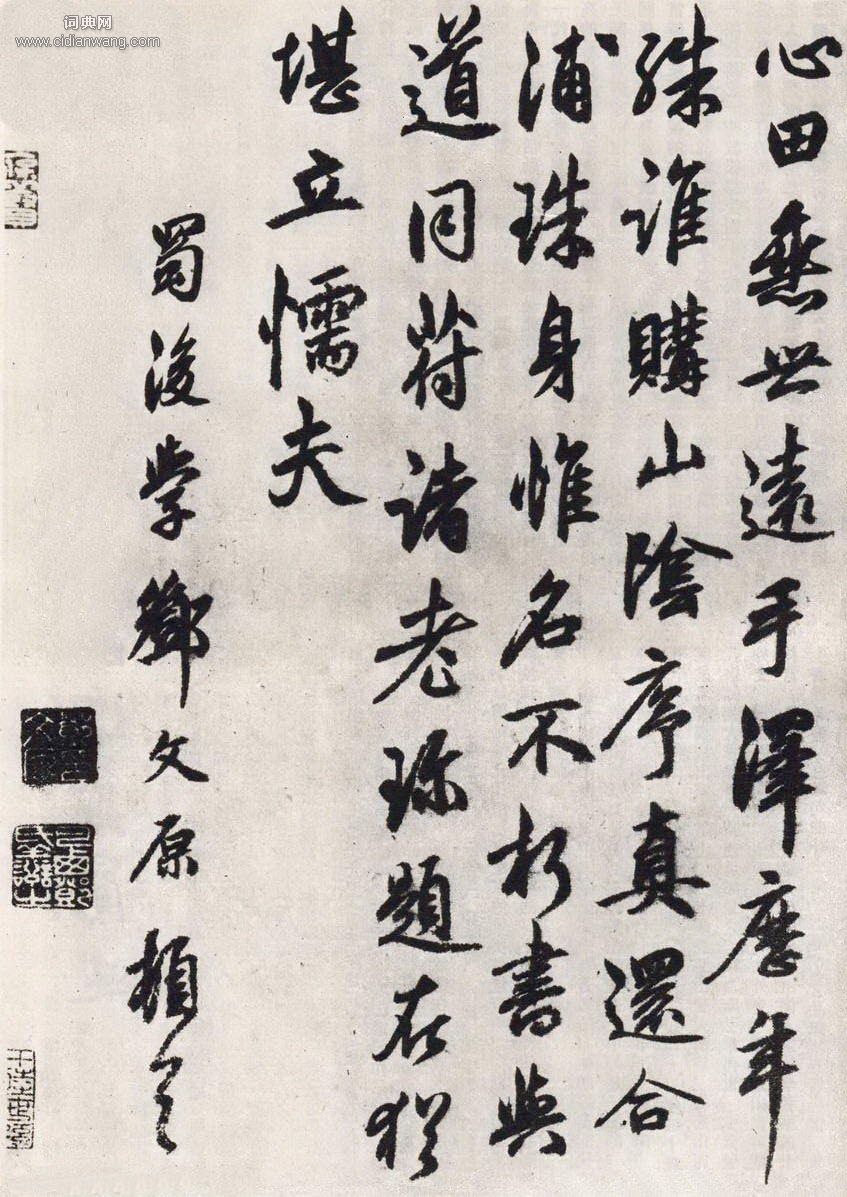 词典网
www.cidianwang.com
心田垂世遠手澤歷年
殊誰購山陰序真還合
浦珠身惟名不朽書與
道同苻諸老珎題在猶
堪立懦夫
蜀後學鄧文原頓首